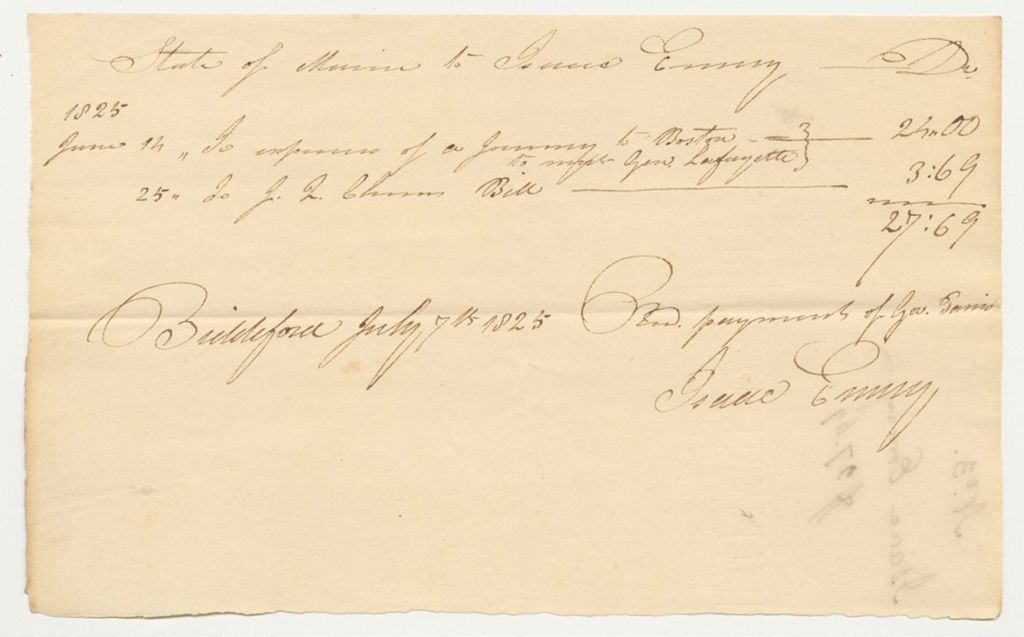 State of Maine to Isaac Emery Dr.
1825
June 14 „ To expences of a Journey to Boston - 24„00
to meet Gen. Lafayette
25 „ To J. Bill 3:69
27:69
Biddeford July 7th 1825 Recd. payment of Gov. Parris
Isaac Emery
No 3.
Isaac Emery
$27.69